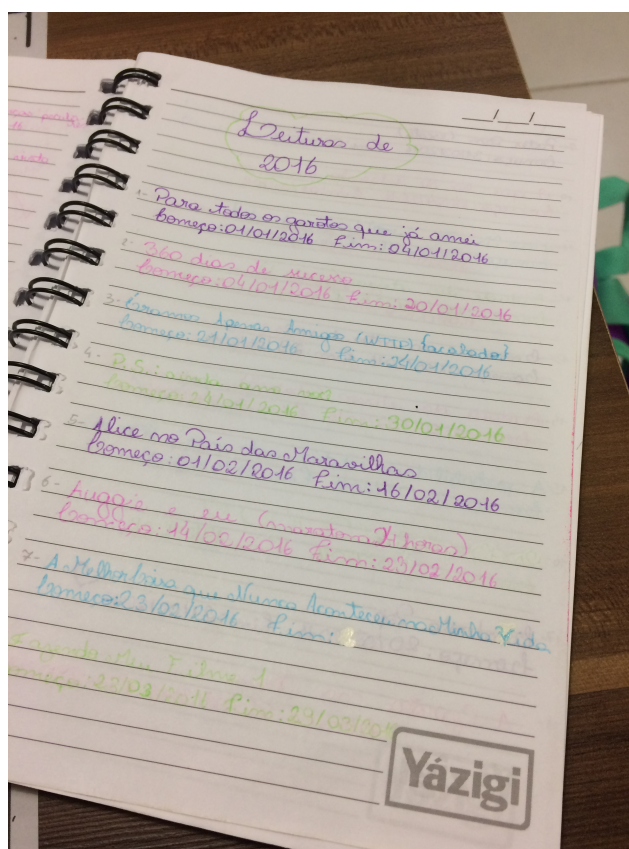 Leituras de
2016
1- Para todos os garotos que já amei
Começo: 01/01/2016 Fim: 04/01/2016
2- 360 dias de sucesso
Começo: 04/01/2016 Fim: 20/01/2016
3- Éramos Apenas Amigos (WTTP) {acabado}
Começo: 21/01/2016 Fim: 24/01/2016
4- P.S.: ainda amo você
Começo: 24/01/2016 Fim: 30/01/2016
5- Alice no País das Maravilhas
Começo: 01/02/2016 Fim: 16/02/2016
6- Auggie e eu (maratona 24 horas)
Começo: 14/02/2016 Fim: 23/02/2016
7- A Melhor Coisa que Nunca Aconteceu na Minha Vida
Começo: 23/02/2016 Fim:
Fazendo Meu Filme 1
Começo: 23/03/2016 Fim: 29/03/2016
Yázigi